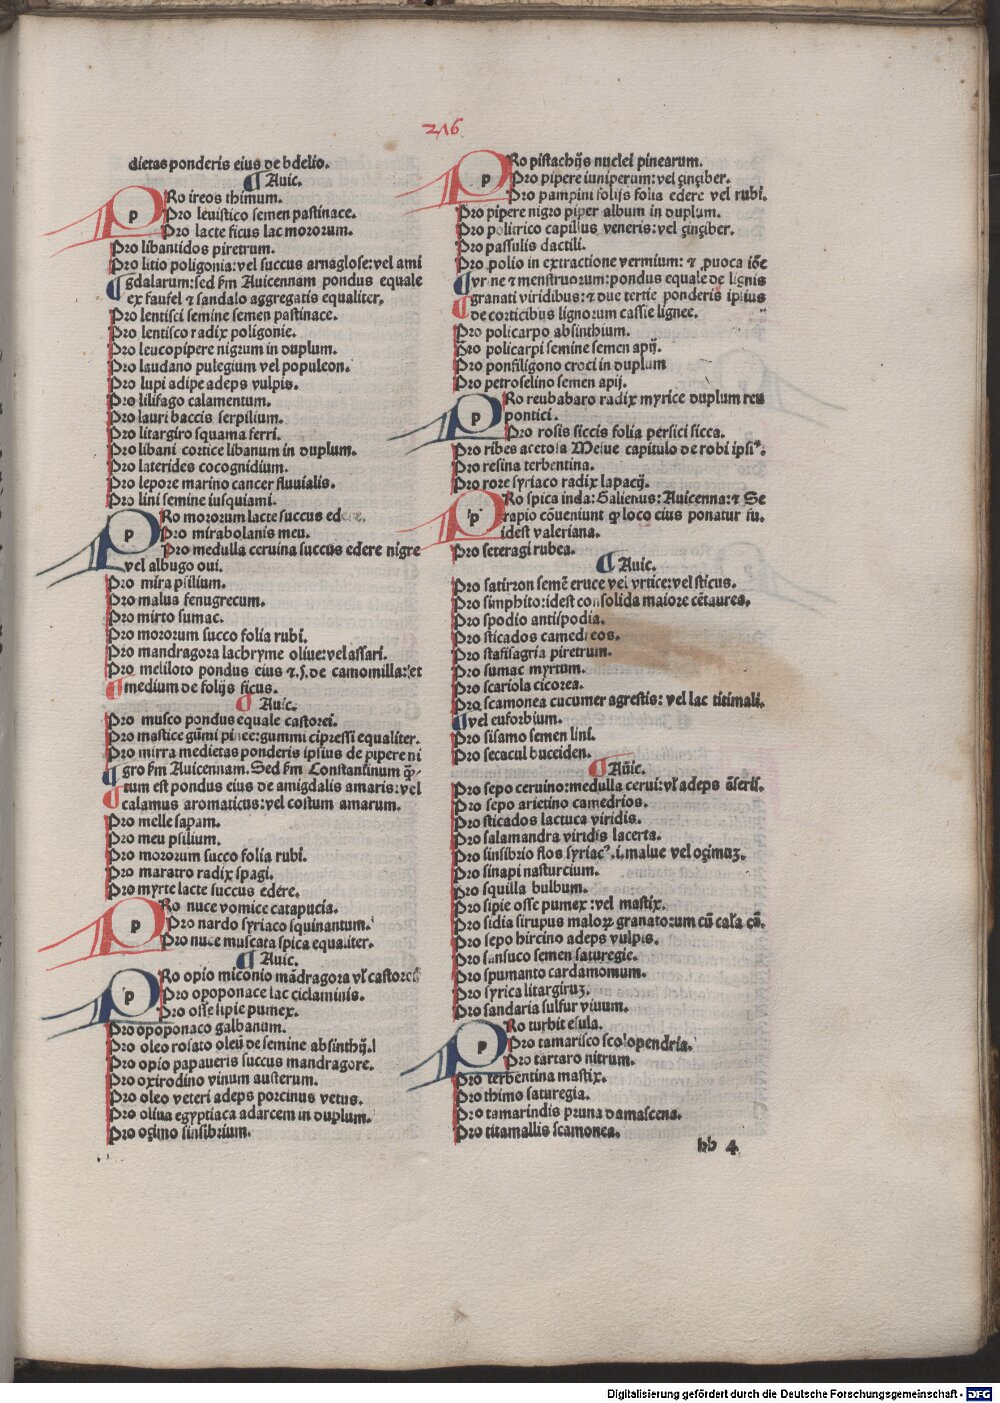 216
dietas ponderis eius de bdelio.
¶ Auic.
PRo ireos thimum.
Pro leuistico semen pastinace.
Pro lacte ficus lac mororum.
Pro libantidos piretrum.
Pro litio poligonia: vel succus arnaglose: vel ami
gdalarum: sed ẜm Auicennam pondus equale
ex faufel ⁊ sandalo aggregatis equaliter.
Pro lentisci semine semen pastinace.
Pro lentisco radix poligonie.
Pro leucopipere nigrum in duplum.
Pro laudano pulegium vel populeon.
Pro lupi adipe adeps vulpis.
Pro lilifago calamentum.
Pro lauri baccis serpilium.
Pro litargiro squama ferri.
Pro libani cortice libanum in duplum.
Pro laterides cocognidium.
Pro lepore marino cancer fluuialis.
Pro lini semine iusquiami.
PRo mororum lacte succus edere.
Pro mirabolanis meu.
Pro medulla ceruina succus edere nigre
vel albugo oui.
Pro mira psilium.
Pro malua fenugrecum.
Pro mirto sumac.
Pro mororum succo folia rubi.
Pro mandragora lachryme oliue: vel assari.
Pro meliloto pondus eius ⁊.ſ. de camomilla: et
¶ medium de folijs ficus.
¶ Auic.
Pro musco pondus equale castorei.
Pro mastice gūmi pinee: gummi cipressi equaliter.
Pro mirra medietas ponderis ipsius de pipere ni
gro ẜm Auicennam. Sed ẜm Constantinum q̄-
tum est pondus eius de amigdalis amaris: vel
calamus aromaticus: vel costum amarum.
Pro melle sapam.
Pro meu psilium.
Pro mororum succo folia rubi.
Pro maratro radix spagi.
Pro myrte lacte succus edere.
PRo nuce vomice catapucia.
Pro nardo syriaco squinantum.
Pro nuce muscata spica equaliter.
¶ Auic.
PRo opio miconio mādragora vl̓ castorei
Pro opoponace lac ciclaminis.
Pro osse sipie pumex.
Pro opoponaco galbanum.
Pro oleo rosato oleū de semine absinthij.
Pro opio papaueris succus mandragore.
Pro oxirodino vinum austerum.
Pro oleo veteri adeps porcinus vetus.
Pro oliua egyptiaca adarcem in duplum.
Pro ozimo sinsibrium.
PRo pistachijs nuclei pinearum.
Pro pipere iuniperum: vel zinziber.
Pro pampini folijs folia edere vel rubi.
Pro pipere nigro piper album in duplum.
Pro politrico capillus veneris: vel zinziber.
Pro passulis dactili.
Pro polio in extractione vermium: ⁊ ꝓuoca iōe
¶ vrine ⁊ menstruorum: pondus equale de lignis
granati viridibus: ⁊ due tertie ponderis ipsius
¶ de corticibus lignorum cassie lignee.
Pro policarpo absinthium.
Pro policarpi semine semen apij.
Pro ponfiligono croci in duplum
Pro petroselino semen apij.
PRo reubabaro radix myrice duplum reu
pontici.
Pro rosis siccis folia persici sicca.
Pro ribes acetosa Mesue capitulo de robi ipsiꝰ.
Pro resina terbentina.
Pro rore syriaco radix lapacij.
PRo spica inda: Galienus: Auicenna: ⁊ Se
rapio cōueniunt qȝ loco eius ponatur fu.
idest valeriana.
Pro seteragi rubea.
¶ Auic.
Pro satirzon semē eruce vel vrtice: vel sticus.
Pro simphito: idest consolida maiore cētaurea.
Pro spodio antispodia.
Pro sticados camedreos.
Pro stafisagria piretrum.
Pro sumac myrtum.
Pro scariola cicorea.
Pro scamonea cucumer agrestis: vel lac titimali.
¶ vel euforbium.
Pro sisamo semen lini.
Pro secacul buceiden.
¶ Auic.
Pro sepo ceruino: medulla cerui: vl̓ adeps āseris.
Pro sepo arietino camedrios.
Pro sticados lactuca viridis.
Pro salamandra viridis lacerta.
Pro sinsibrio flos syriacꝰ .i. malue vel ozimuȝ.
Pro sinapi nasturcium.
Pro squilla bulbum.
Pro sipie osse pumex: vel mastix.
Pro sidia sirupus maloꝝ granatorum cū casa eā.
Pro sepo hircino adeps vulpis.
Pro sansuco semen saturegie.
Pro spumanto cardamomum.
Pro syrica litargiruȝ.
Pro sandaria sulfur viuum.
PRo turbit esula.
Pro tamarisco scolopendria.
Pro tartaro nitrum.
Pro terbentina mastix.
Pro thimo saturegia.
Pro tamarindis pruna damascena.
Pro titamallis scamonea.
bb 4
Digitalisierung gefördert durch die Deutsche Forschungsgemeinschaft - DFG